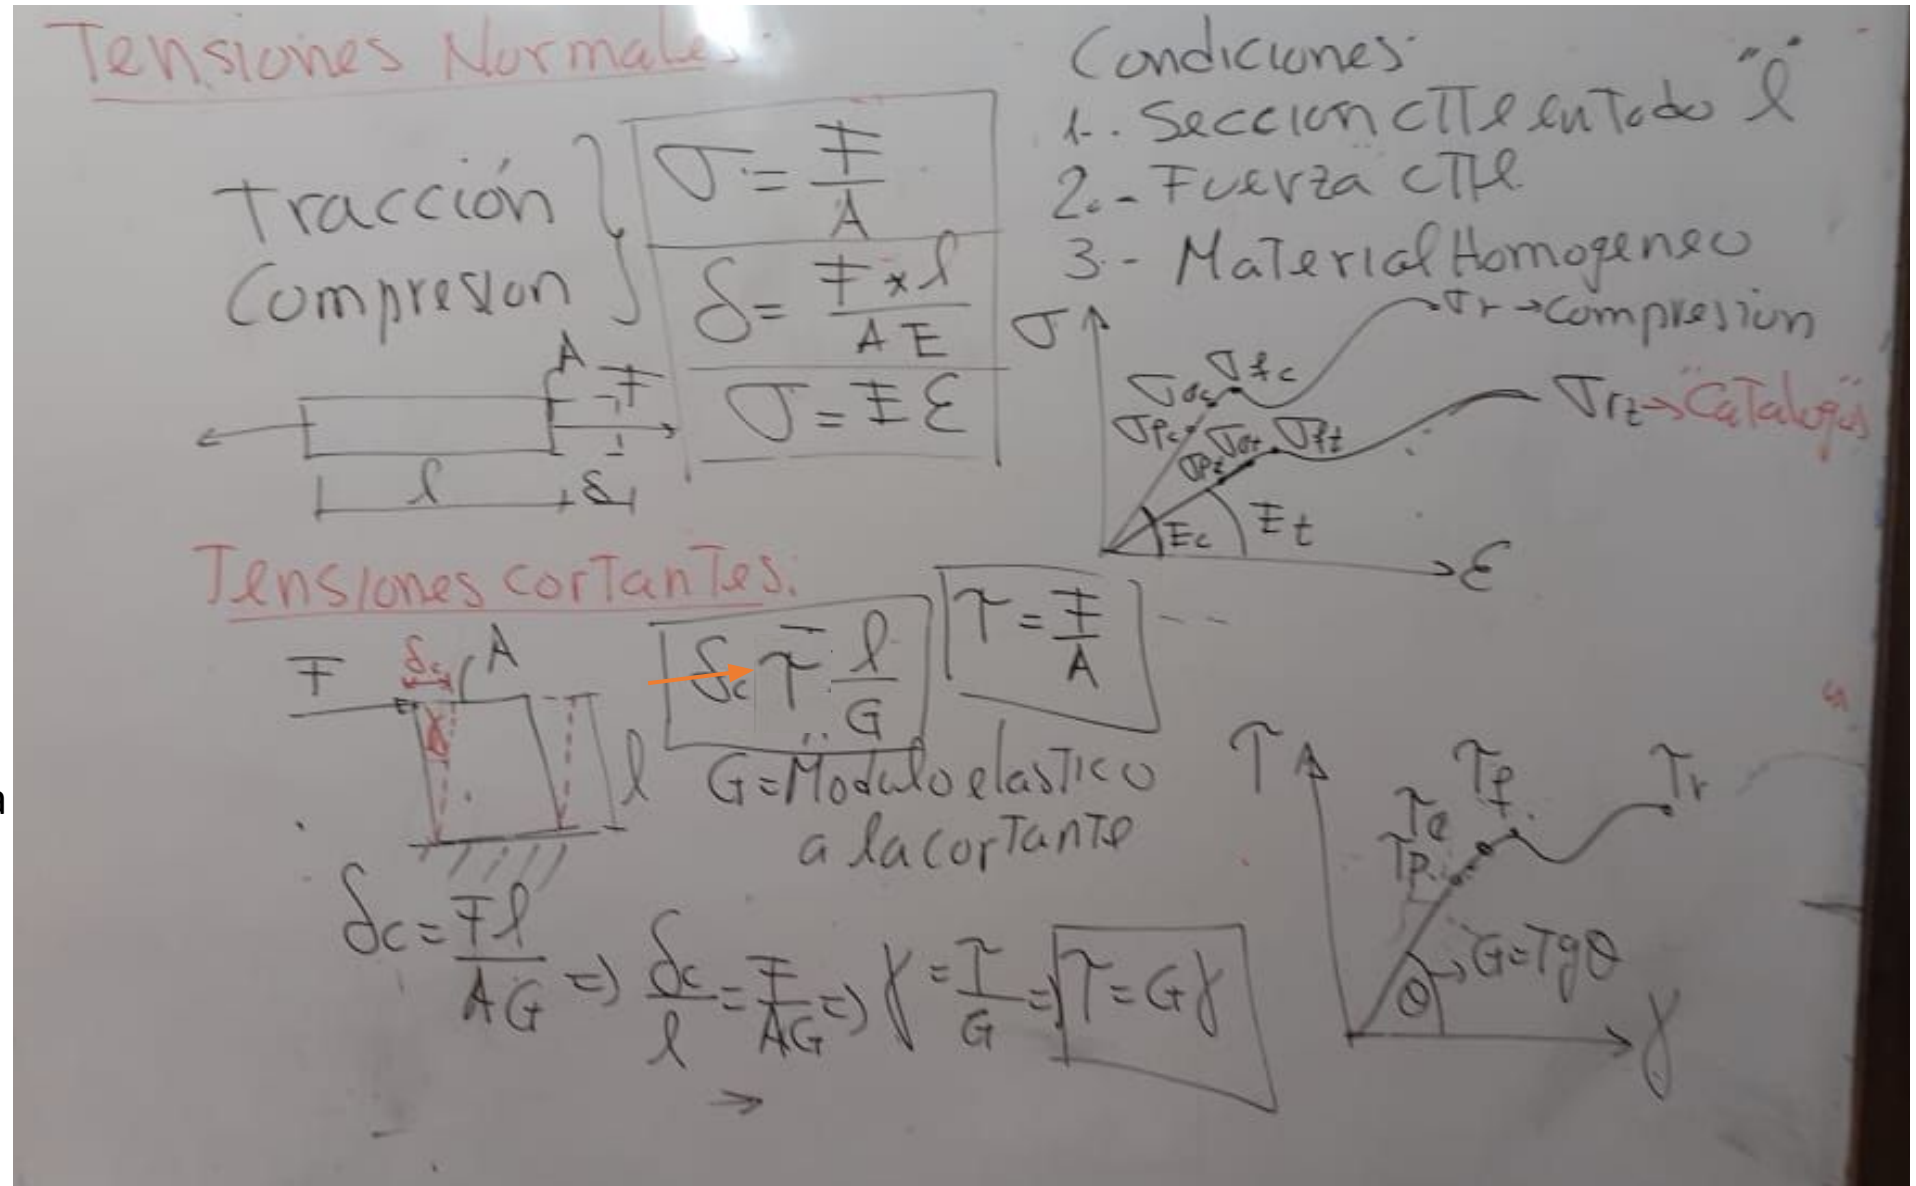 Tensiones Normales:
Tracción
Compresion
σ = F/A
δ = F*l/AE
σ = Eε
A
F
l
δ
Condiciones:
1.. Seccion cTTe en Todo "l"
2.- Fuerza cTTe
3.- Material Homogeneo
σ
σr → compresion
σfc
σec
σPc
σrt → "Catalogos"
σft
σet
σPt
Ec
Et
ε
Tensiones corTanTes:
F
δc
A
γ
l
δc τ l/G
τ = F/A
G = Modulo elasTico
a la corTanTe
δc = Fl/AG => δc/l = F/AG => γ = τ/G => τ = Gγ
→
τ
τf
τr
τe
τp
θ
G = Tgθ
γ